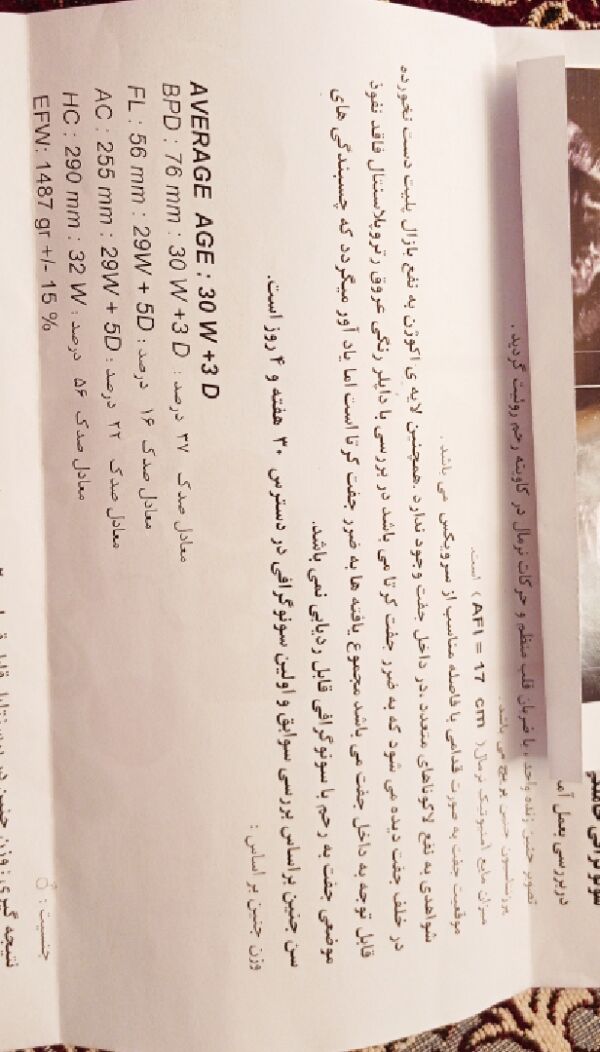 سونوگرافی حاملگی
در بررسی بعمل آمده
تصویر جنین زنده واحد، با ضربان قلب منظم و حرکات نرمال در کاویته رحم رویت گردید.
پرزانتاسیون جنین بریچ می باشد.
میزان مایع آمنیوتیک نرمال (AFI = 17 cm) است.
موقعیت جفت به صورت قدامی با فاصله مناسب از سرویکس می باشد.
شواهدی به نفع لاکوناهای متعدد در داخل جفت وجود ندارد. همچنین لایه ی اکوژن به نفع بازال پلیت دست نخورده
در خلف جفت دیده می شود که به ضرر جفت کرتا می باشد در بررسی با داپلر رنگی عروق رتروپلاسنتال فاقد نفوذ
قابل توجه به داخل جفت می باشد مجموع یافته ها به ضرر جفت کرتا است اما یاد آور میگردد که چسبندگی های
موضعی جفت به رحم با سونوگرافی قابل ردیابی نمی باشد.
سن جنین براساس بررسی سوابق و اولین سونوگرافی در دسترس ۳۰ هفته و ۴ روز است.
وزن جنین بر اساس :
AVERAGE AGE : 30 W +3 D
BPD : 76 mm : 30 W +3 D : معادل صدک ۳۷ درصد
FL : 56 mm : 29W + 5D : معادل صدک ۱۶ درصد
AC : 255 mm : 29W + 5D : معادل صدک ۲۲ درصد
HC : 290 mm : 32 W : معادل صدک ۵۶ درصد
EFW: 1487 gr +/- 15 %
جنسیت : ♂
نتیجه گیری: وزن جنین در